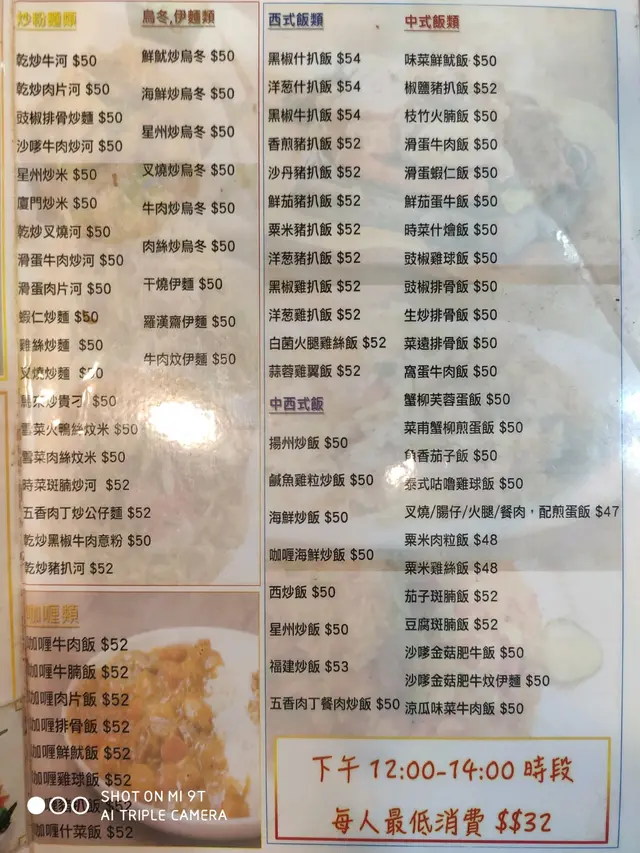 炒粉麵類
乾炒牛河 $50
乾炒肉片河 $50
豉椒排骨炒麵 $50
沙嗲牛肉炒河 $50
星州炒米 $50
廈門炒米 $50
乾炒叉燒河 $50
滑蛋牛肉炒河 $50
滑蛋肉片河 $50
蝦仁炒麵 $50
雞絲炒麵 $50
叉燒炒麵 $50
炒貴刁 $50
雪菜火鴨絲炆米 $50
雪菜肉絲炆米 $50
時菜斑腩炒河 $52
五香肉丁炒公仔麵 $52
乾炒黑椒牛肉意粉 $50
乾炒豬扒河 $52
烏冬,伊麵類
鮮魷炒烏冬 $50
海鮮炒烏冬 $50
星州炒烏冬 $50
叉燒炒烏冬 $50
牛肉炒烏冬 $50
肉絲炒烏冬 $50
干燒伊麵 $50
羅漢齋伊麵 $50
牛肉炆伊麵 $50
咖喱類
咖喱牛肉飯 $52
咖喱牛腩飯 $52
咖喱肉片飯 $52
咖喱排骨飯 $52
咖喱鮮魷飯 $52
咖喱雞球飯 $52
扒飯 $52
咖喱什菜飯 $52
西式飯類
黑椒什扒飯 $54
洋葱什扒飯 $54
黑椒牛扒飯 $54
香煎豬扒飯 $52
沙丹豬扒飯 $52
鮮茄豬扒飯 $52
粟米豬扒飯 $52
洋葱豬扒飯 $52
黑椒雞扒飯 $52
洋葱雞扒飯 $52
白菌火腿雞絲飯 $52
蒜蓉雞翼飯 $52
中西式飯
揚州炒飯 $50
鹹魚雞粒炒飯 $50
海鮮炒飯 $50
咖喱海鮮炒飯 $50
西炒飯 $50
星州炒飯 $50
福建炒飯 $53
五香肉丁餐肉炒飯 $50
中式飯類
味菜鮮魷飯 $50
椒鹽豬扒飯 $52
枝竹火腩飯 $50
滑蛋牛肉飯 $50
滑蛋蝦仁飯 $50
鮮茄蛋牛飯 $50
時菜什燴飯 $50
豉椒雞球飯 $50
豉椒排骨飯 $50
生炒排骨飯 $50
菜遠排骨飯 $50
窩蛋牛肉飯 $50
蟹柳芙蓉蛋飯 $50
菜甫蟹柳煎蛋飯 $50
魚香茄子飯 $50
泰式咕嚕雞球飯 $50
叉燒/腸仔/火腿/餐肉，配煎蛋飯 $47
粟米肉粒飯 $48
粟米雞絲飯 $48
茄子斑腩飯 $52
豆腐斑腩飯 $52
沙嗲金菇肥牛飯 $50
沙嗲金菇肥牛炆伊麵 $50
涼瓜味菜牛肉飯 $50
下午 12:00-14:00 時段
每人最低消費 $$32
SHOT ON MI 9T
AI TRIPLE CAMERA